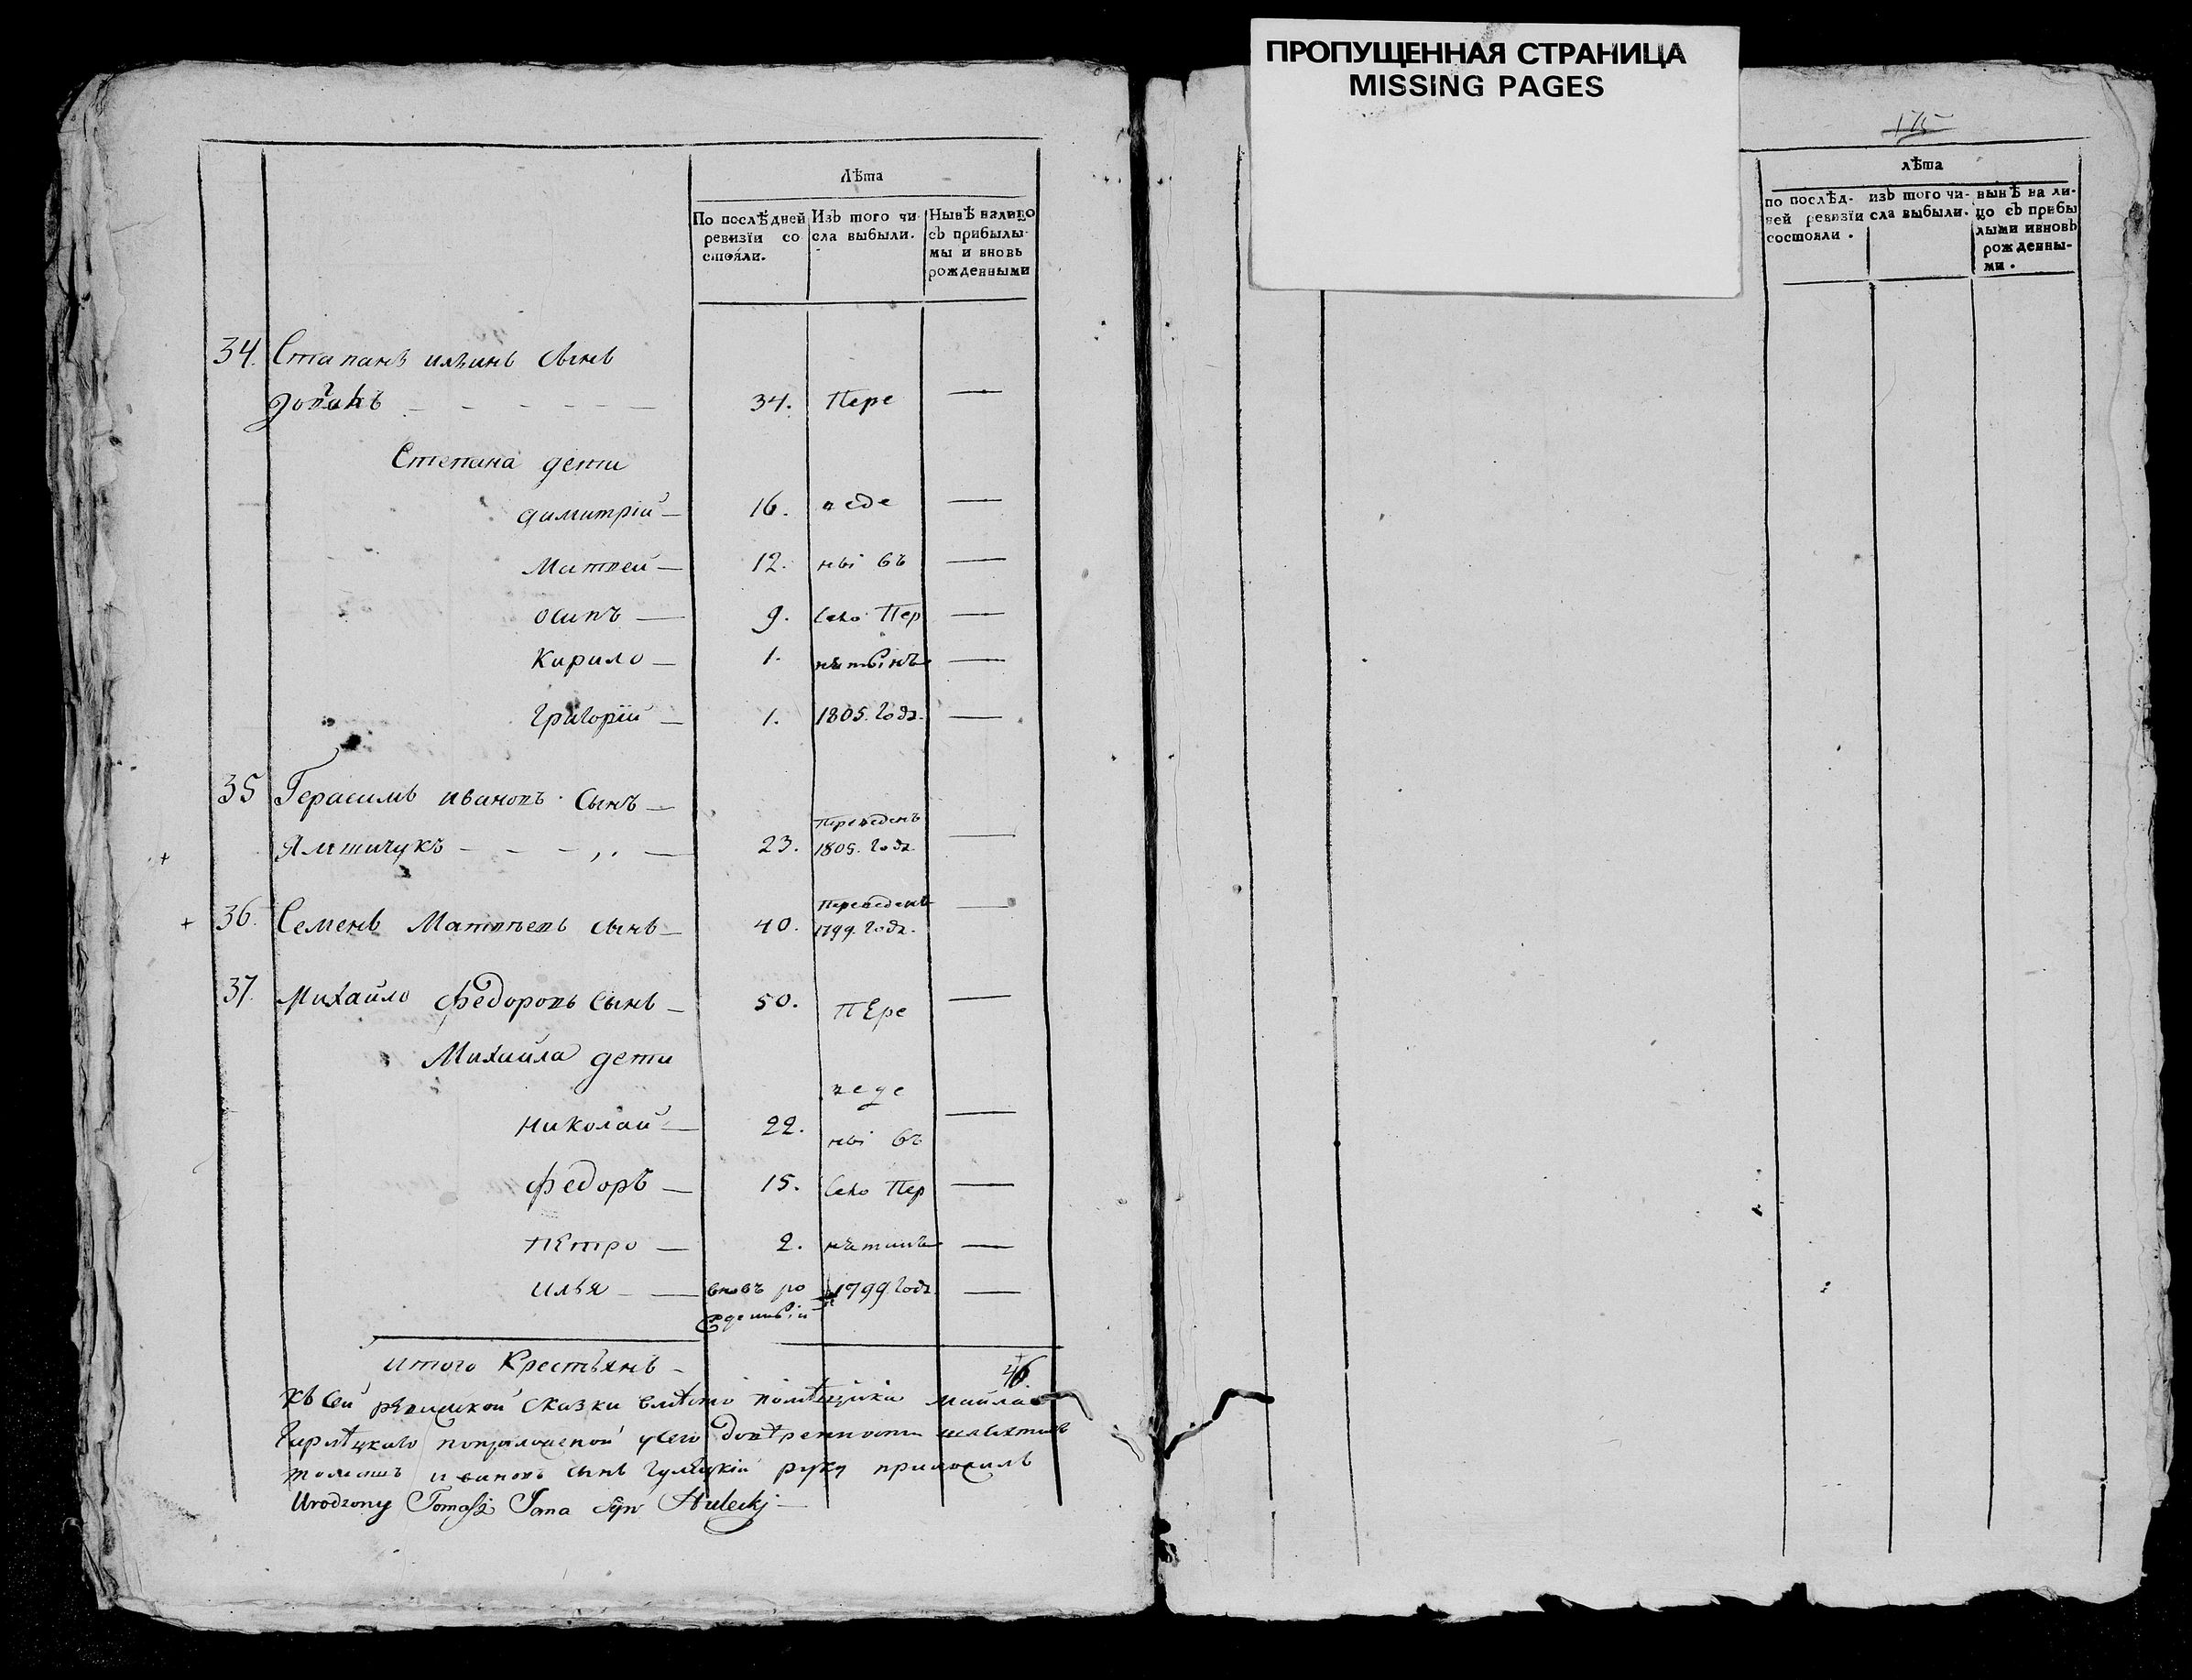 ПРОПУЩЕННАЯ СТРАНИЦА
MISSING PAGES
Лѣта
По послѣдней ревизіи состояли.
Изъ того числа выбыли.
Нынѣ налицо съ прибылыми и вновь рожденными
34. Стапанъ ильинъ сынъ
34. Пере —
Степана дети
димитрій — 16. веде —
Матвей — 12. ны въ —
осипъ — 9. село Пер —
Кирило — 1. —
Григорій — 1. 1805. Года. —
35 Герасимъ ивановъ сынъ —
Ямшичукъ — 23. Переведенъ 1805. Года —
36. Семенъ Матвеевъ сынъ — 40. Переведенъ 1799. Года. —
37. Михайло Федоровъ сынъ — 50. ПЕре —
Михайла дети
веде
Николай — 22. ны въ —
Федоръ — 15. село Пер —
ПЕтро — 2. —
илья — вновь рожденный 1799 Года. —
итого Крестьянъ — 46
Къ сей ревиской сказки вместо помѣщика
руку приложилъ
Urodzony Tomasz Jana Syn Hulecki
115
лѣта
по послѣдней ревизіи состояли.
изъ того числа выбыли.
нынѣ на лицо съ прибылыми ивновь рожденными.